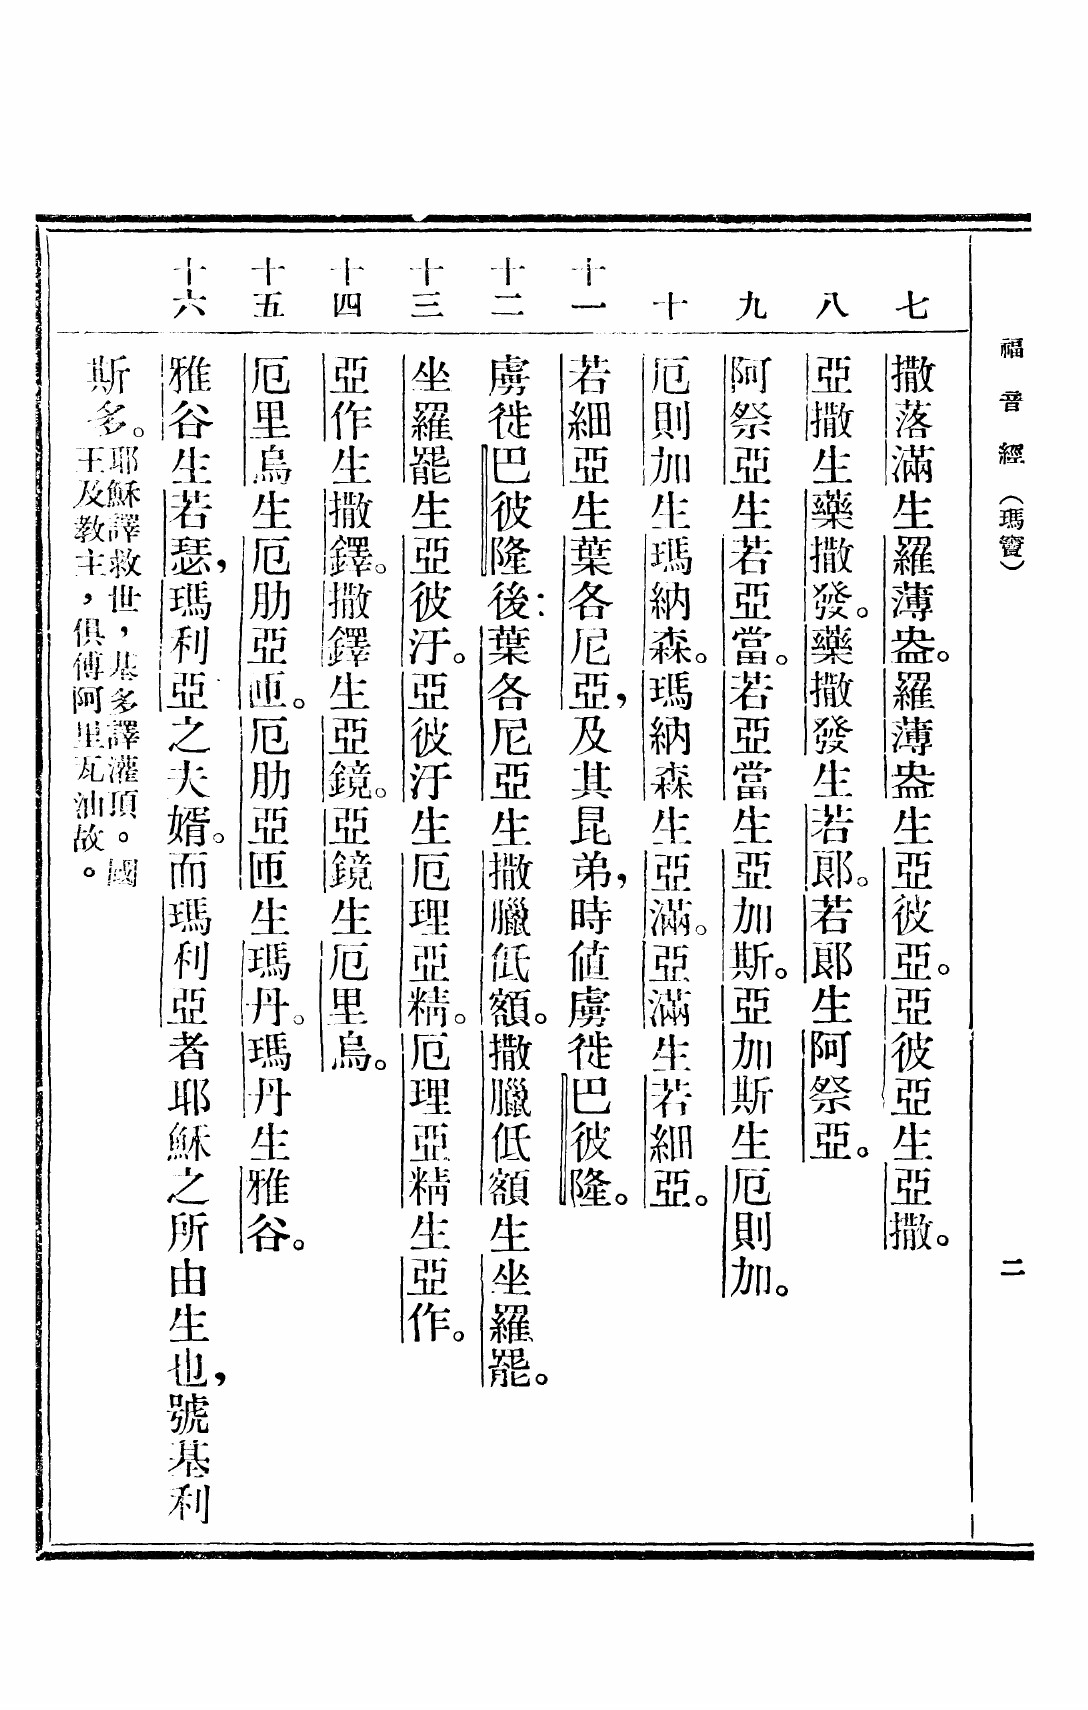 福音經（瑪竇）　二
七　撒落滿生羅薄盎。羅薄盎生亞彼亞。亞彼亞生亞撒。
八　亞撒生藥撒發。藥撒發生若郎。若郎生阿祭亞。
九　阿祭亞生若亞當。若亞當生亞加斯。亞加斯生厄則加。
十　厄則加生瑪納森。瑪納森生亞滿。亞滿生若細亞。
十一　若細亞生葉各尼亞，及其昆弟，時値虜徙巴彼隆。
十二　虜徙巴彼隆後：葉各尼亞生撒臘低額。撒臘低額生坐羅罷。
十三　坐羅罷生亞彼汙。亞彼汙生厄理亞精。厄理亞精生亞作。
十四　亞作生撒鐸。撒鐸生亞鏡。亞鏡生厄里烏。
十五　厄里烏生厄肋亞匝。厄肋亞匝生瑪丹。瑪丹生雅谷。
十六　雅谷生若瑟，瑪利亞之夫婿。而瑪利亞者耶穌之所由生也，號基利
斯多。耶穌譯救世，基多譯灌頂。國
王及教主，俱傅阿里瓦油故。